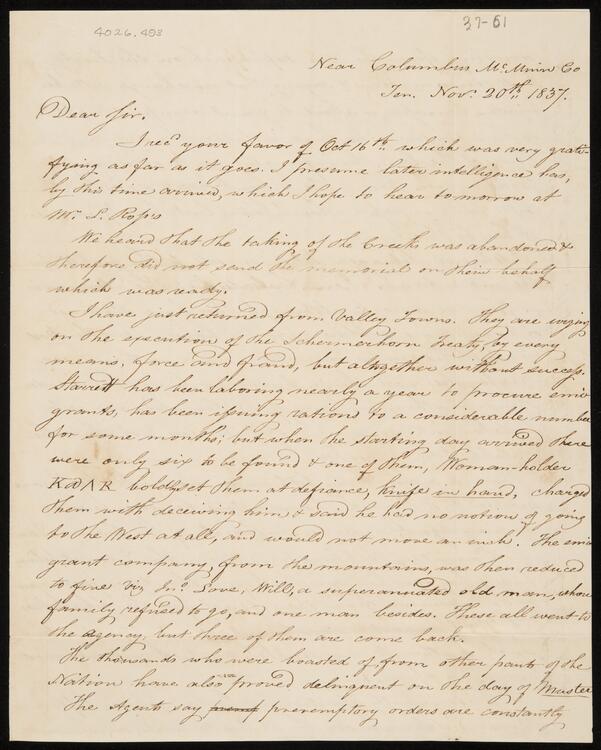 4026.493
37-61
Near Columbus McMinn Co
Ten. Nov. 20th. 1837.
Dear Sir.
I recd. your favor of Oct 16th. which was very grati-
fying as far as it goes. I presume later intelligence has,
by this time arrived, which I hope to hear tomorrow at
Mr. L. Ross's
We heard that the taking of the Creeks was abandoned &
therefore did not send the memorial on their behalf
which was ready.
I have just returned from Valley Towns. They are urging
on the execution of the Schermerhorn treaty, by every
means, force and fraud, but altogether without success.
Starrett has been laboring nearly a year to procure emi-
grants, has been issuing rations to a considerable number
for some months; but when the starting day arrived there
were only six to be found & one of them, Woman-holder
boldly set them at defiance, knife in hand, charged
them with deceiving him & said he had no notion of going
to the West at all, and would not move an inch. The emi-
grant company, from the mountains, was then reduced
to five viz Jno. Love, Will, a superannuated old man, whose
family refused to go, and one man besides. These all went to
the agency, but three of them are come back.
The thousands who were boasted of from other parts of the
Nation have also proved delinquent on the day of Muster
The Agents say peremptory orders are constantly